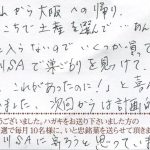 れから大阪への帰り、
こちで土産を選んで…あん
と入らないので いくつか買って
川SAで巣ごもりを見つけて、
これがあったのに!」と喜ん
ました、次回からは計画的
うございました。ハガキをお送り下さいました方の
選で毎月10名様に、いと忠銘菓を送らせて頂きま
川SAに寄ろうと思っていま